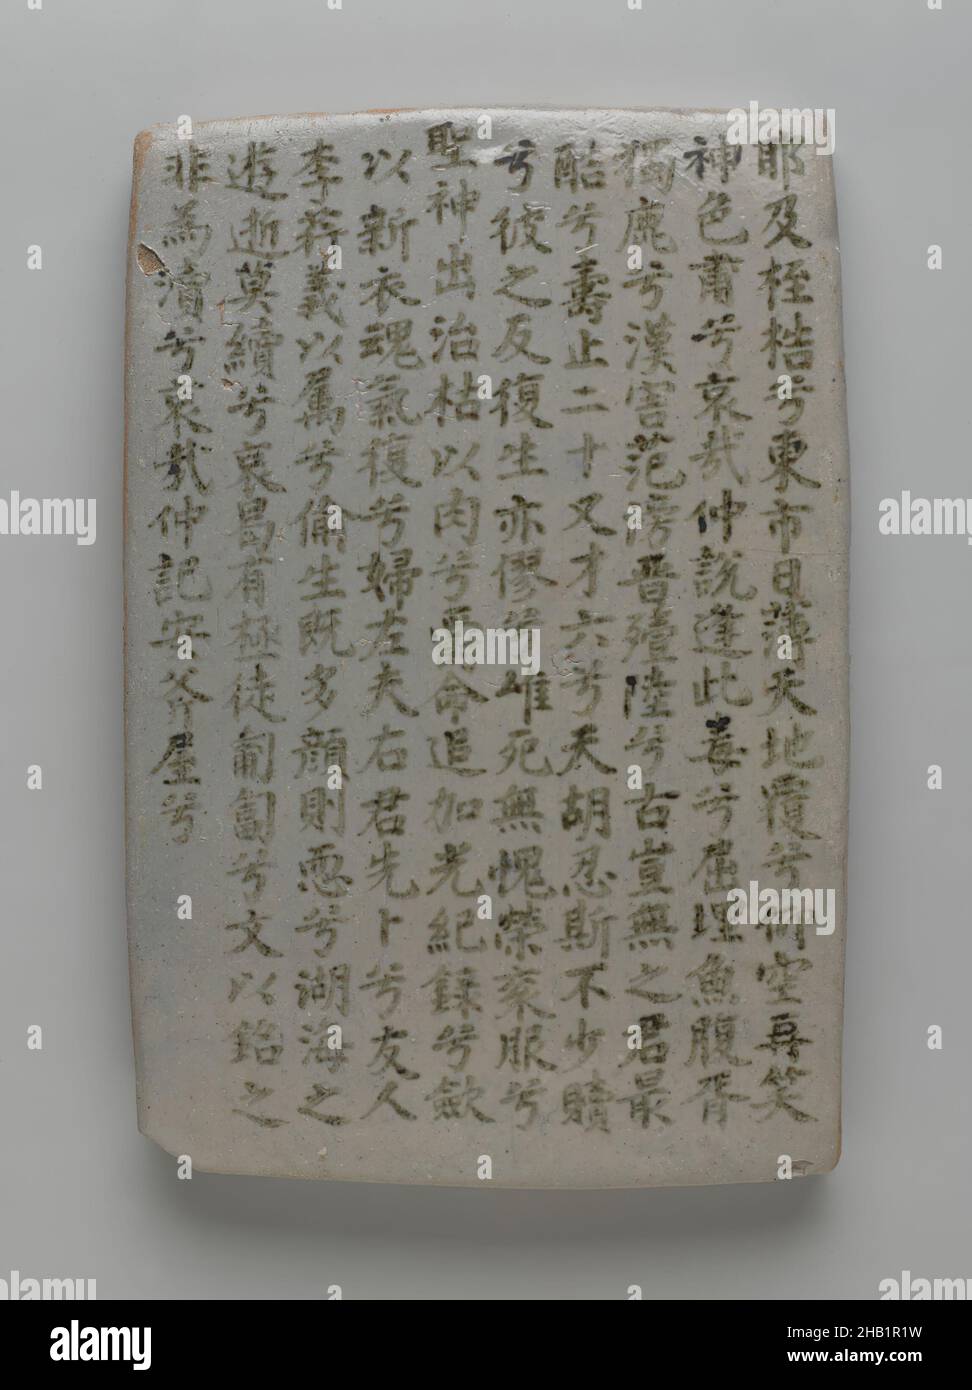 耶及桎梏兮東市日薄天地覆兮仰空再笑
神色甫兮哀哉仲說逢此毒兮屈埋魚腹胥
鹿兮漢害范滂晋殪陸兮古豈無之君最
酷兮壽止二十又才六兮天胡忍斯不少贖
兮彼之反復生亦僇兮雖死無愧榮衮服兮
聖神出治枯以肉兮命追加光紀錄兮歛
以新衣魂氣復兮婦左夫右君先卜兮友人
李荇義以厲兮偷生既多顔則恧兮湖海之
遊逝莫續兮哀曷有極徒匍匐兮文以銘之
非為瀆兮哀哉仲記安斧屋兮
alamy
Image ID: 2HB1R1W
www.alamy.com